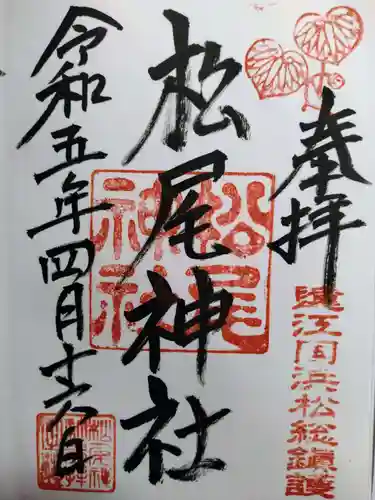 奉拝
遠江国浜松総鎮護
松尾神社
松尾神社
令和五年四月十六日